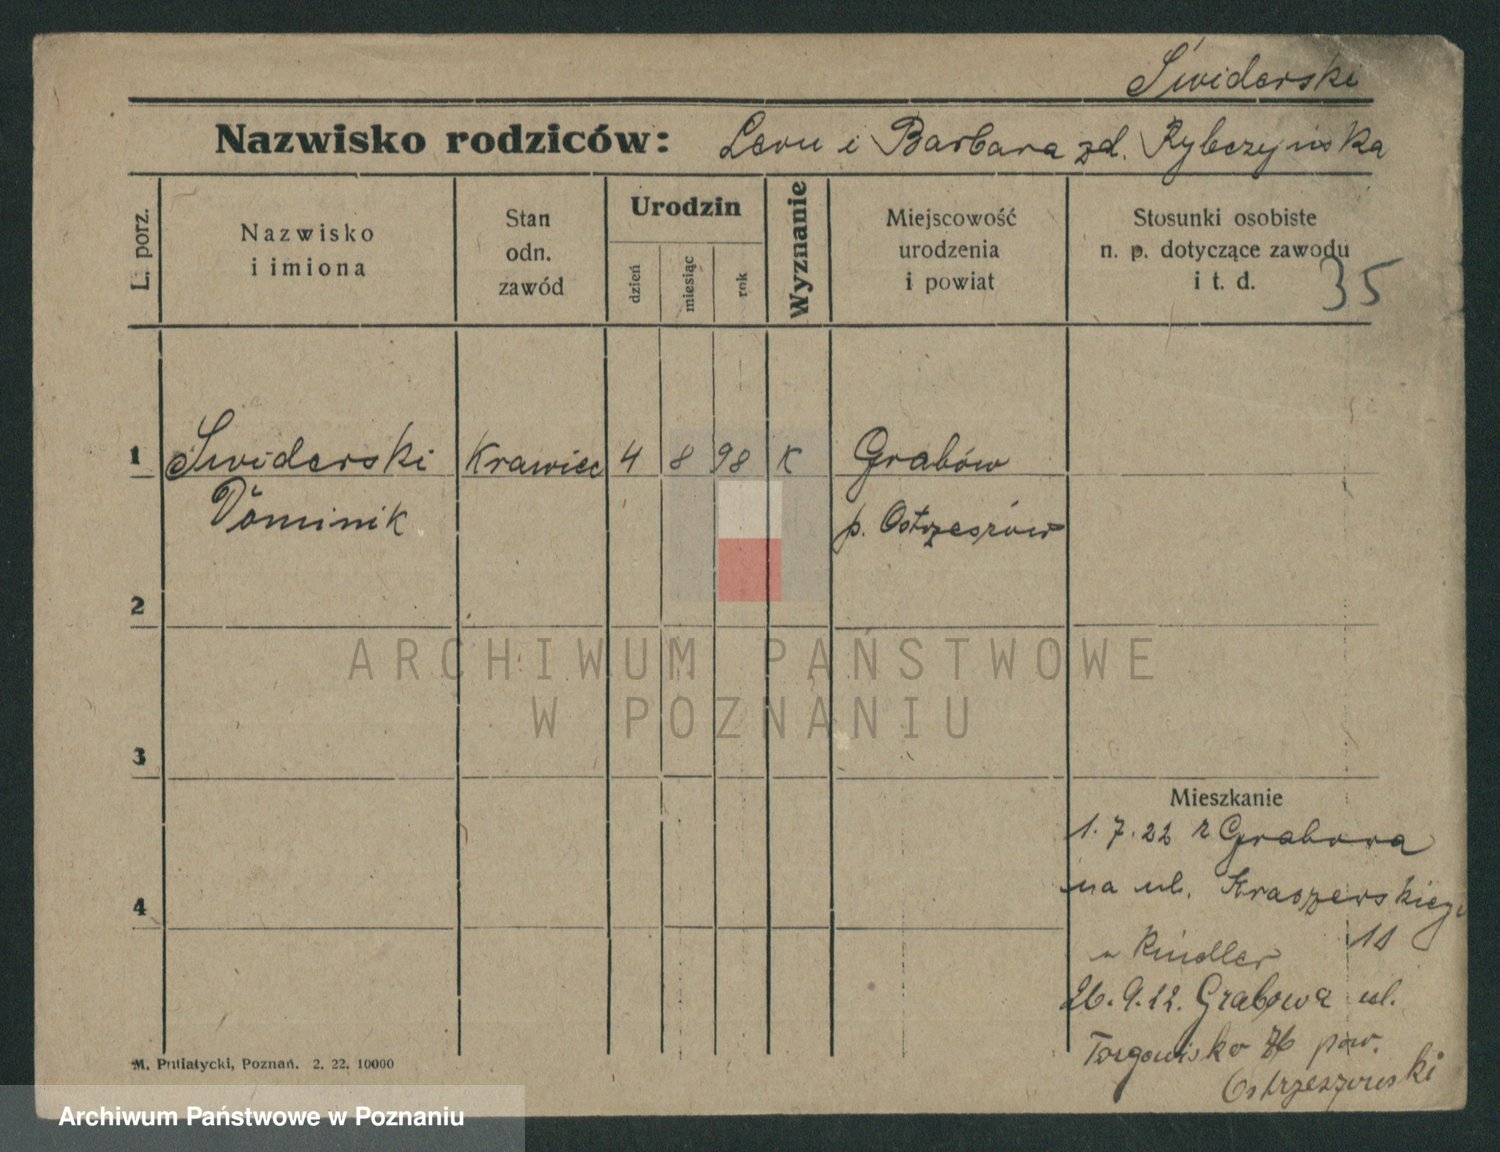 Świderski
Nazwisko rodziców: Leon i Barbara zd. Rybczyńska
L. porz.
Nazwisko
i imiona
Stan
odn.
zawód
Urodzin
dzień
miesiąc
rok
Wyznanie
Miejscowość
urodzenia
i powiat
Stosunki osobiste
n. p. dotyczące zawodu
i t. d.
35
1 Świderski Krawiec 4 8 98 K Grabów
Dominik p. Ostrzeszów
2
3
4
Mieszkanie
1.7.22 z Grabowa
na ul. Kraszewskiego
11
u Rindler
26.9.22. Grabowa ul.
Targowisko 76 pow.
Ostrzeszowski
M. Putiatycki, Poznań. 2. 22. 10000
ARCHIWUM PAŃSTWOWE
W POZNANIU
Archiwum Państwowe w Poznaniu